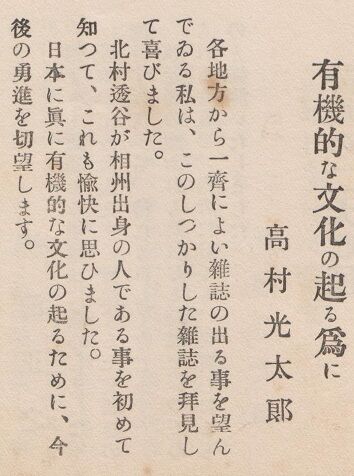 有機的な文化の起る爲に
高村光太郎
各地方から一齊によい雜誌の出る事を望ん
でゐる私は、このしつかりした雜誌を拜見し
て喜びました。
北村透谷が相州出身の人である事を初めて
知つて、これも愉快に思ひました。
日本に眞に有機的な文化の起るために、今
後の勇進を切望します。